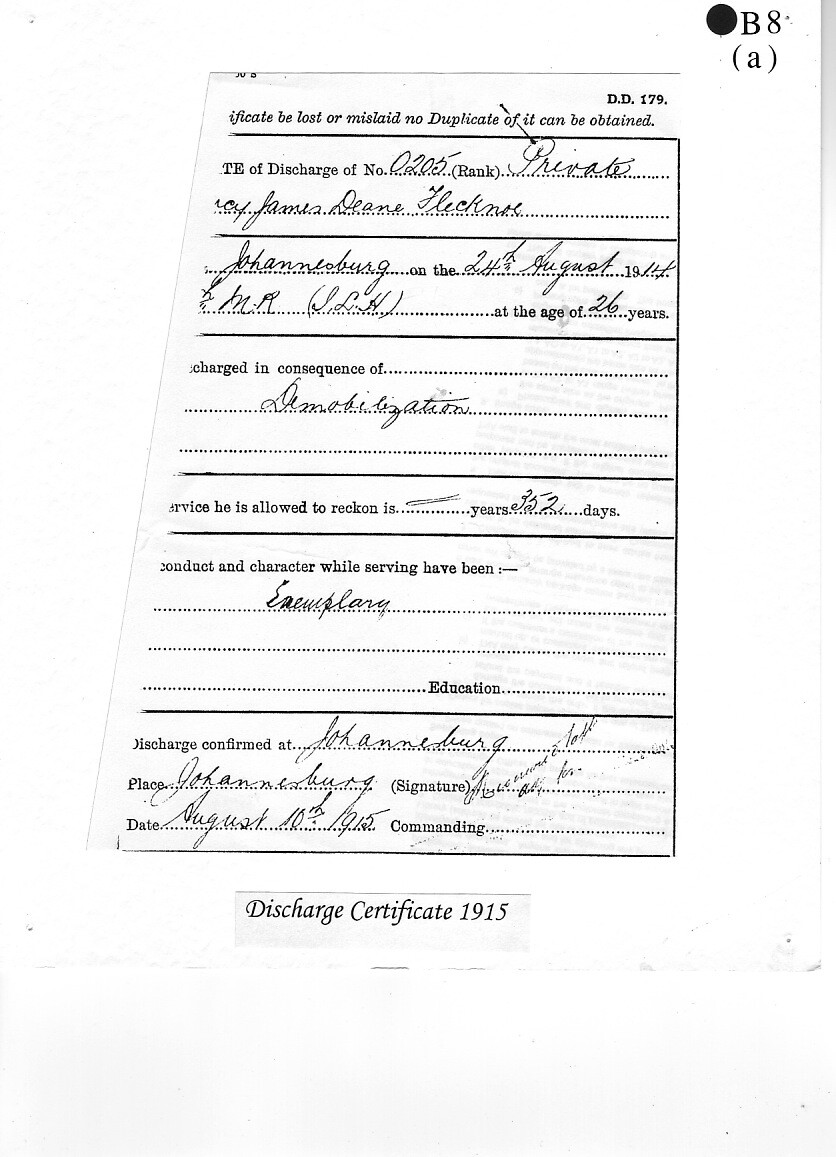 B8
(a)
D.D. 179.
ificate be lost or mislaid no Duplicate of it can be obtained.
TE of Discharge of No. 0205 (Rank) Private
rcy James Deane Flecknoe
Johannesburg on the 24th August 1914
h M.R (I.L.H) at the age of 26 years.
charged in consequence of
Demobilization
ervice he is allowed to reckon is — years 352 days.
conduct and character while serving have been :—
Exemplary
Education
Discharge confirmed at Johannesburg
Place Johannesburg (Signature)
Date August 10th 1915 Commanding
Discharge Certificate 1915